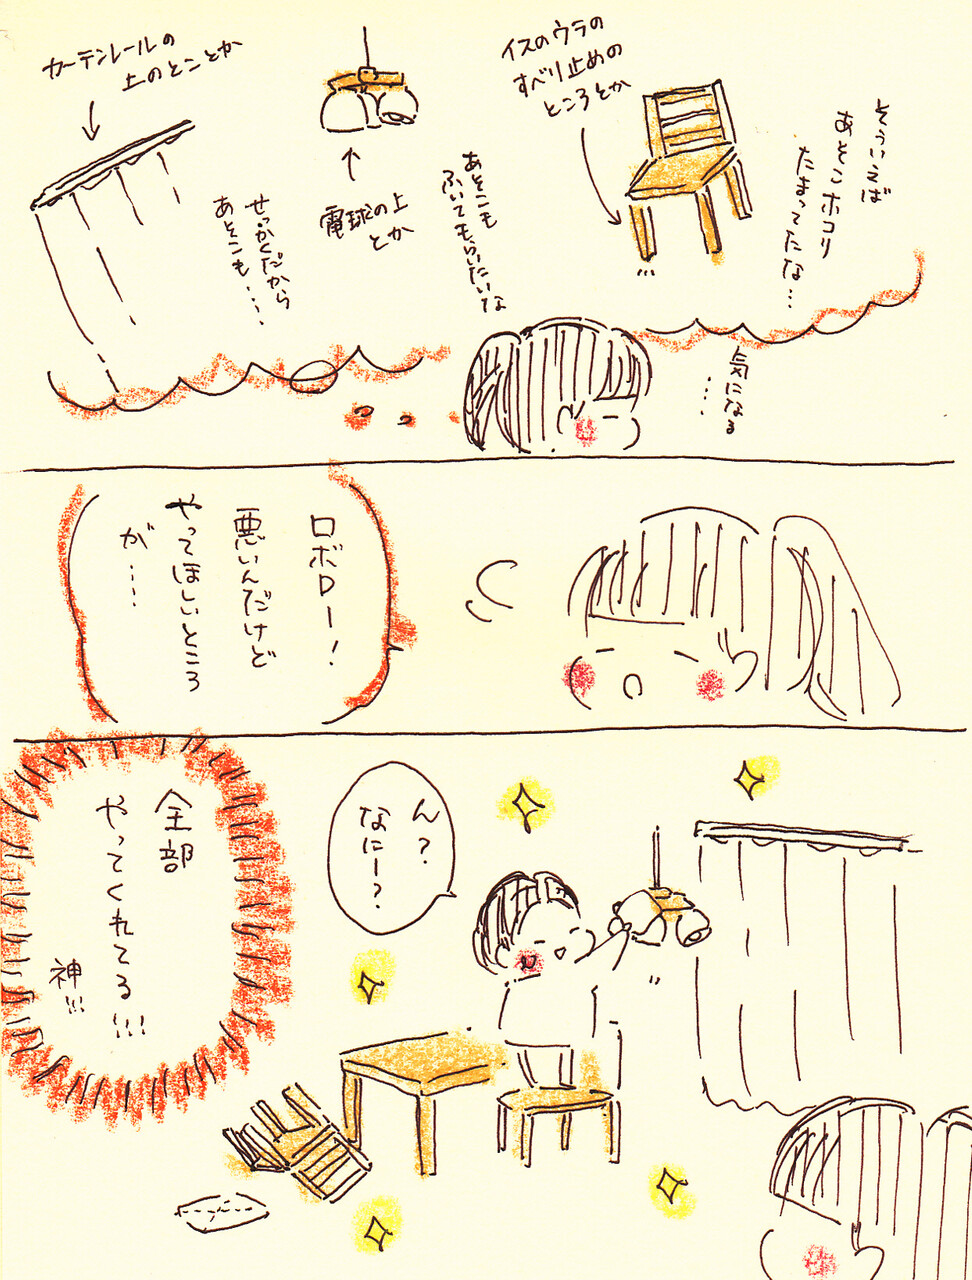 そういえば
あそこホコリ
たまってたな…
イスのウラの
すべり止めの
ところとか
あそこも
ふいてもらいたいな
電球の上
とか
せっかくだから
あそこも・・・・
カーテンレールの
上のとことか
気になる
・・・・
ロボロー！
悪いんだけど
やってほしいところ
が・・・・
ん？
なにー？
全部
やってくれてる!!!
神!!!